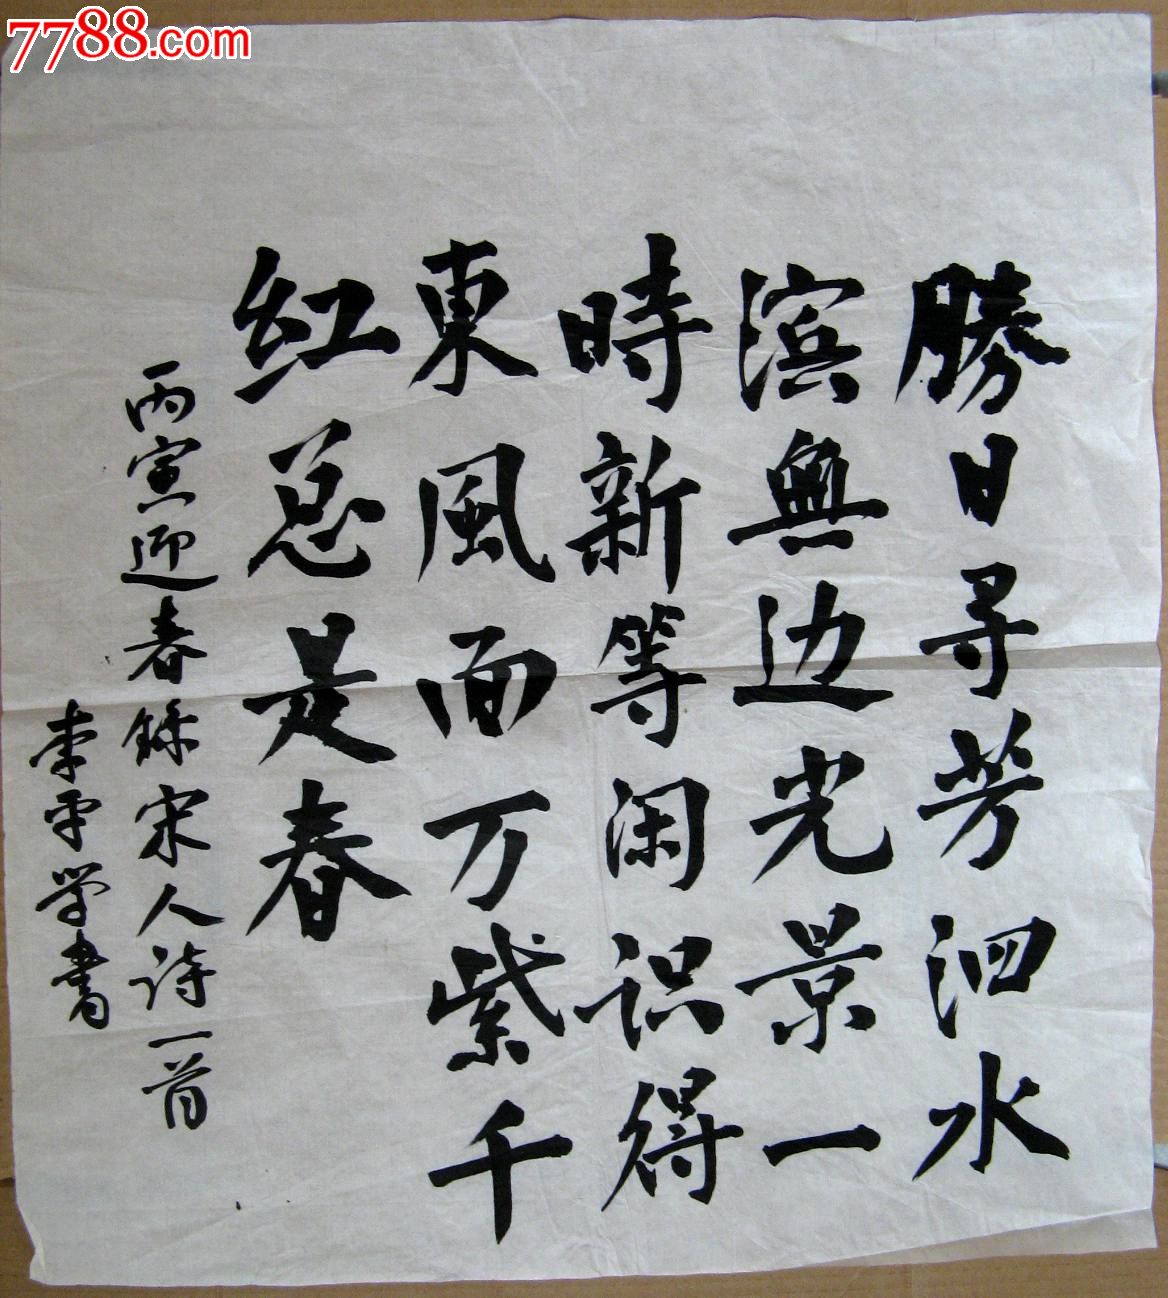 7788.com
勝日寻芳泗水
滨無边光景一
時新等闲识得
東風面万紫千
红总是春
丙寅迎春録宋人诗一首
李平学書